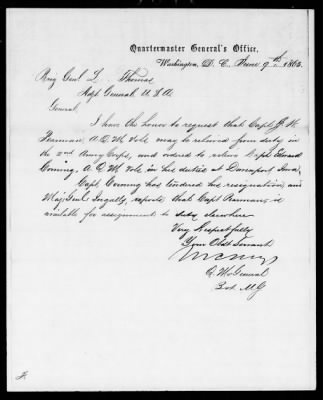 Quartermaster General's Office,
Washington, D. C. June 9th, 1865.
Brig Genl L. Thomas
Adjt General, U.S.A.
General,
I have the honor to request that Capt J. W.
Pearman, A.Q.M. Vols may be relieved from duty in
the 2nd Army Corps, and ordered to relieve Capt Edward
Corning, A.Q.M. Vols in his duties at Davenport Iowa.
Capt. Corning has tendered his resignation, and
Maj Genl Ingalls, reports that Capt Pearman is
available for assignment to duty elsewhere
Very Respectfully
Your Obdt Servant
Q. M. General
Bvt. M.G